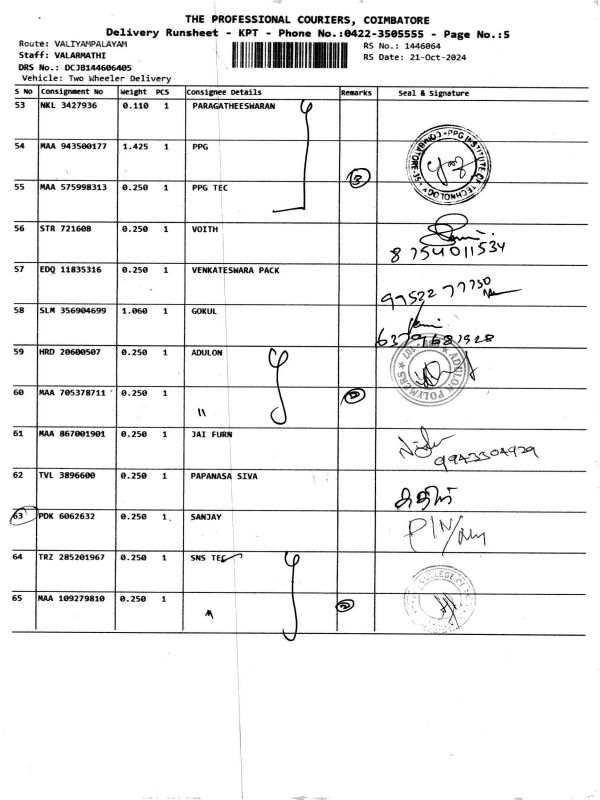 THE PROFESSIONAL COURIERS, COIMBATORE
Delivery Runsheet - KPT - Phone No.:0422-3505555 - Page No.:5
Route: VALIYAMPALAYAM
RS No.: 1446064
Staff: VALARMATHI
RS Date: 21-Oct-2024
DRS No.: DCJB144606405
Vehicle: Two Wheeler Delivery
S No Consignment No Weight PCS Consignee Details Remarks Seal & Signature
53 NKL 3427936 0.110 1 PARAGATHEESWARAN
54 MAA 943500177 1.425 1 PPG
PPG INSTITUTE OF TECHNOLOGY * COIMBATORE-35 *
55 MAA 575998313 0.250 1 PPG TEC
3
56 STR 721608 0.250 1 VOITH
8754011534
57 EDQ 11835316 0.250 1 VENKATESWARA PACK
97522 77730
58 SLM 356904699 1.060 1 GOKUL
59 HRD 20600507 0.250 1 ADULON
ADULON POLYMERS
60 MAA 705378711 0.250 1 "
2
61 MAA 867001901 0.250 1 JAI FURN
9943304929
62 TVL 3896600 0.250 1 PAPANASA SIVA
63 PDK 6062632 0.250 1 SANJAY
64 TRZ 285201967 0.250 1 SNS TEC
COLLEGE OF
65 MAA 109279810 0.250 1 "
2